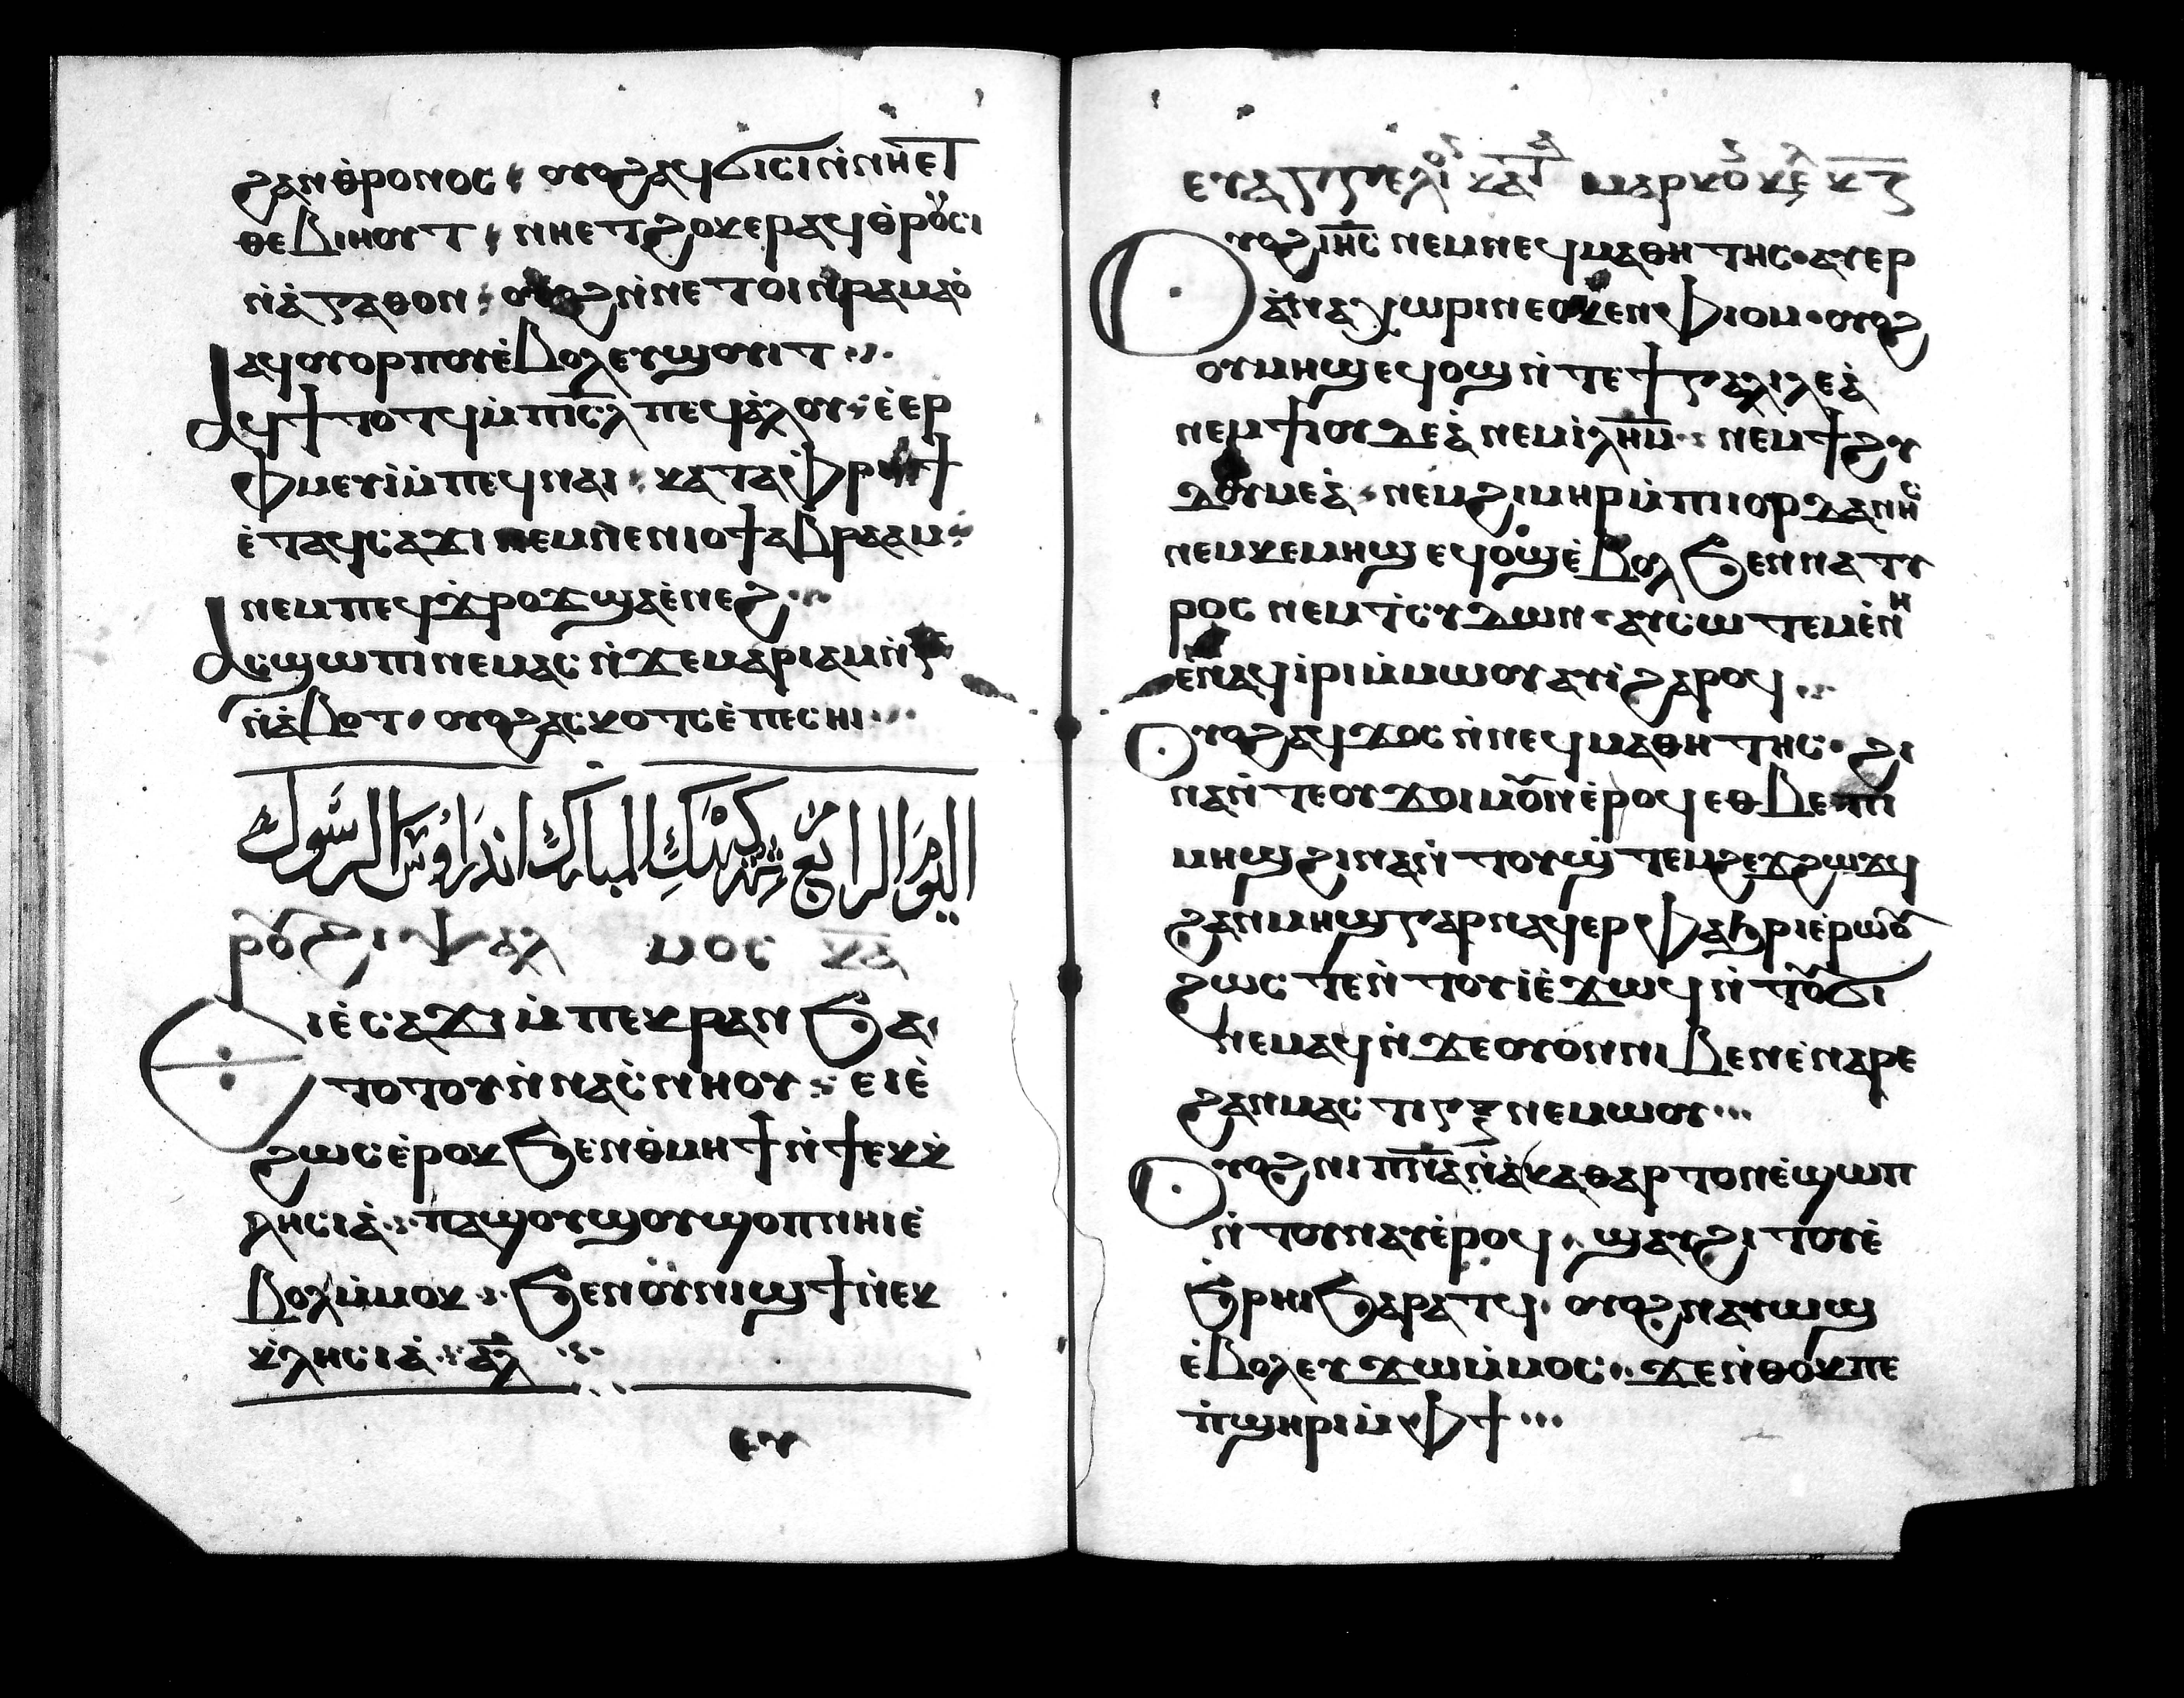 ϩⲁⲛⲑ̀ⲣⲟⲛⲟⲥ ⲟⲩⲟϩ ⲁϥϭⲓⲥⲓ ⲛ̀ⲛⲏⲉⲧ
ⲑⲉⲃⲓⲏⲟⲩⲧ ⲛⲏⲉⲧϩⲟⲕⲉⲣ ⲁϥⲑ̀ⲣⲟⲩⲥⲓ
ⲛ̀ⲁ̀ⲅⲁⲑⲟⲛ ⲟⲩⲟϩ ⲛ̀ⲛⲉⲧⲟⲓ ⲛ̀ⲣⲁⲙⲁⲟ̀
ⲁϥⲟⲩⲟⲣⲡⲟⲩ ⲉ̀ⲃⲟⲗ ⲉⲩϣⲟⲩⲓⲧ
ⲁϥϯⲧⲟⲧϥ ⲙ̀ⲡⲓⲥ̅ⲗ̅ ⲡⲉϥⲁ̀ⲗⲟⲩ ⲉ̀ⲉⲣ
ⲫⲙⲉⲩⲓ̀ ⲙ̀ⲡⲉϥⲛⲁⲓ ⲕⲁⲧⲁ ⲫⲣⲏϯ
ⲉ̀ⲧⲁϥⲥⲁϫⲓ ⲛⲉⲙ ⲛⲉⲛⲓⲟϯ ⲁⲃⲣⲁⲁⲙ
ⲛⲉⲙ ⲡⲉϥϫⲣⲟϫ ϣⲁ ⲉ̀ⲛⲉϩ
ⲁⲥϣⲱⲡⲓ ⲛⲉⲙⲁⲥ ⲛ̀ϫⲉ ⲙⲁⲣⲓⲁⲙ ⲛ̀ⲅ̅
ⲛ̀ⲁ̀ⲃⲟⲧ ⲟⲩⲟϩ ⲁⲥⲕⲟⲧⲥ ⲉ̀ⲡⲉⲥⲏⲓ
اليَوم الرابع شهر كيهك المبارك اندراوس الرسول
ⲣⲟ̅ϩⲓ ⲯⲁⲗⲙⲟⲥ ⲕ̅ⲁ̅
ⲉⲓⲉ̀ⲥⲁϫⲓ ⲙ̀ⲡⲉⲕⲣⲁⲛ ϧⲁ
ⲧⲟⲧⲟⲩ ⲛ̀ⲛⲁⲥ̀ⲛⲏⲟⲩ ⲉⲓⲉ̀
ϩⲱⲥ ⲉ̀ⲣⲟⲕ ϧⲉⲛ ⲑ̀ⲙⲏϯ ⲛ̀ϯⲉⲕⲕ̀
ⲗⲏⲥⲓⲁ̀ ⲡⲁϣⲟⲩϣⲟⲩ ϣⲟⲡ ⲛⲏⲓ ⲉ̀
ⲃⲟⲗ ⲙ̀ⲙⲟⲕ ϧⲉⲛ ⲟⲩⲛⲓϣϯ ⲛ̀ⲉⲕ
ⲕ̀ⲗⲏⲥⲓⲁ̀ ⲁ̅ⲗ̅
ⲉⲩ
ⲉⲩⲁⲅⲅⲉⲗⲓⲟⲛ ⲕⲁⲧⲁ ⲙⲁⲣⲕⲟⲛ ⲕⲉ ⲕ̅ⲍ̅
ⲟⲩⲟϩ ⲓⲏ̅ⲥ̅ ⲛⲉⲙ ⲛⲉϥⲙⲁⲑⲏⲧⲏⲥ ⲁⲩⲉⲣ
ⲁ̀ⲛⲁⲭⲱⲣⲓⲛ ⲉⲥⲕⲉⲛ ⲫⲓⲟⲙ ⲟⲩⲟϩ
ⲟⲩⲙⲏϣ ⲉϥⲟϣ ⲛ̀ⲧⲉ ϯⲅⲁⲗⲓⲗⲉⲁ̀
ⲛⲉⲙ ϯⲓⲟⲩⲇⲉⲁ̀ ⲛⲉⲙ ⲓ̀ⲗⲏ̅ⲙ̅ ⲛⲉⲙ ϯϩⲩ
ⲇⲟⲩⲙⲉⲁ̀ ⲛⲉⲙ ϩⲓⲙⲏⲣ ⲙ̀ⲡⲓⲓⲟⲣⲇⲁⲛⲏⲥ
ⲛⲉⲙ ⲕⲉⲙⲏϣ ⲉϥⲟ̀ϣ ⲉ̀ⲃⲟⲗ ϧⲉⲛ ⲛⲁ ⲧⲩ
ⲣⲟⲥ ⲛⲉⲙ ⲧ̀ⲥⲩⲇⲱⲛ ⲁⲩⲥⲱⲧⲉⲙ ⲉ̀ⲛⲏ
ⲉ̀ⲛⲁϥⲓ̀ⲣⲓ ⲙ̀ⲙⲱⲟⲩ ⲁⲩⲓ̀ ϩⲁⲣⲟϥ
ⲟⲩⲟϩ ⲁϥϫⲟⲥ ⲛ̀ⲛⲉϥⲙⲁⲑⲏⲧⲏⲥ ϩⲓ
ⲛⲁ ⲛ̀ⲧⲉ ⲟⲩϫⲟⲓ ⲙⲟⲩⲛ ⲉ̀ⲣⲟϥ ⲉⲑⲃⲉ ⲡⲓ
ⲙⲏϣ ϩⲓⲛⲁ ⲛ̀ⲧⲟⲩϣ̀ⲧⲉⲙϩⲉϫϩⲱϫϥ
ϩⲁⲛⲙⲏϣ ⲅⲁⲣ ⲛⲁϥⲉⲣⲫⲁϧⲣⲓ ⲉ̀ⲣⲱⲟⲩ
ϩⲱⲥ ⲧⲉⲛ̀ⲧⲟⲩⲓ̀ ⲉ̀ϫⲱϥ ⲛ̀ⲧⲟⲩϭⲓ
ⲛⲉⲙⲁϥ ⲛ̀ϫⲉ ⲟⲩⲟⲛ ⲛⲓⲃⲉⲛ ⲉ̀ⲛⲁⲣⲉ
ϩⲁⲛⲙⲁⲥⲧⲓⲅⲝ ⲛⲉⲙⲱⲟⲩ
ⲟⲩⲟϩ ⲛⲓⲡ̅ⲛ̅ⲁ̅ ⲛ̀ⲁ̀ⲕⲁⲑⲁⲣⲧⲟⲛ ⲉ̀ϣⲱⲡ
ⲛ̀ⲧⲟⲩⲛⲁⲩ ⲉ̀ⲣⲟϥ ϣⲁⲩϩⲓⲧⲟⲩ ⲉ̀
ϧ̀ⲣⲏⲓ ϧⲁⲣⲁⲧϥ ⲟⲩⲟϩ ⲛⲁⲩⲱϣ
ⲉ̀ⲃⲟⲗ ⲉⲩϫⲱ ⲙ̀ⲙⲟⲥ ϫⲉ ⲛ̀ⲑⲟⲕ ⲡⲉ
ⲡ̀ϣⲏⲣⲓ ⲙ̀ⲫϯ